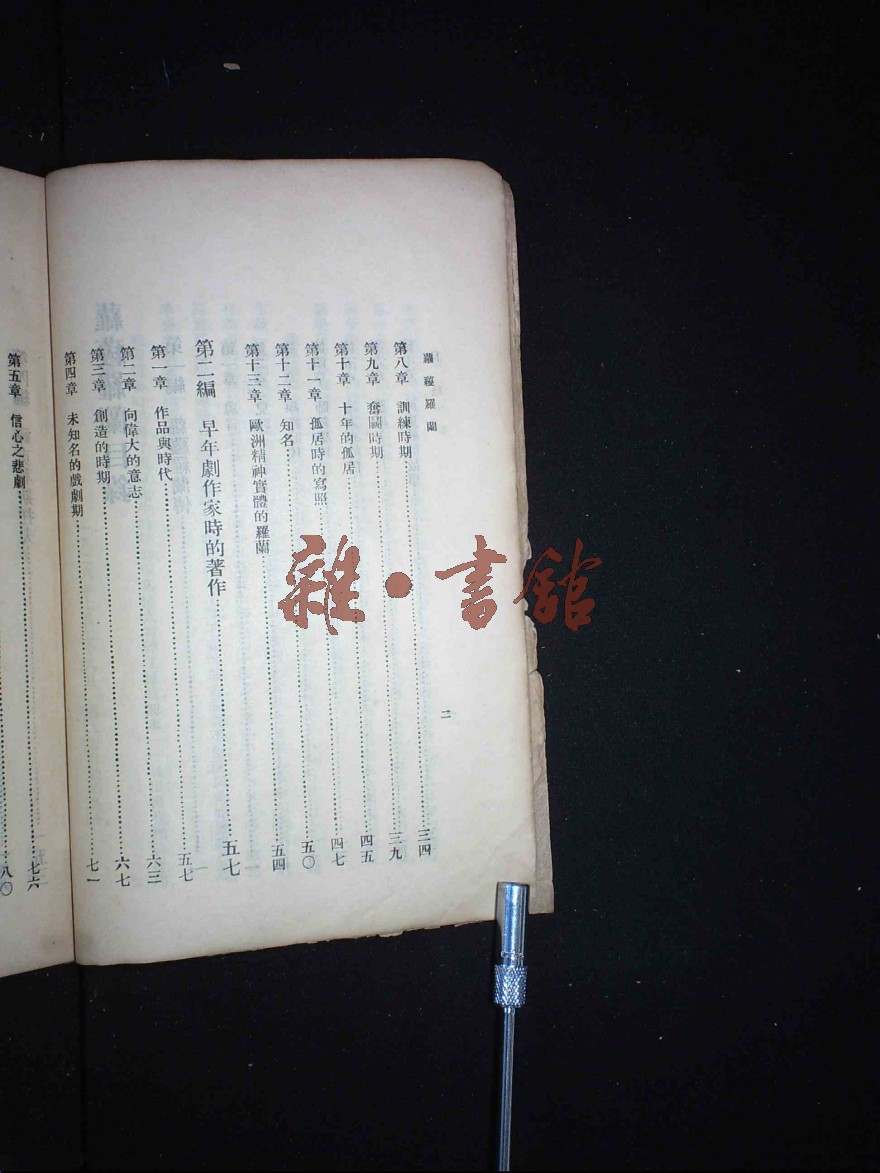 蘿蔓羅蘭
二
第八章 訓練時期……三四
第九章 奮鬪時期……三九
第十章 十年的孤居……四五
第十一章 孤居時的寫照……四七
第十二章 知名……五〇
第十三章 歐洲精神實體的羅蘭……五四
第二編 早年劇作家時的著作……五七
第一章 作品與時代……五七
第二章 向偉大的意志……六三
第三章 創造的時期……六七
第四章 未知名的戲劇期……七一
第五章 信心之悲劇……七六
八〇
雜·書館